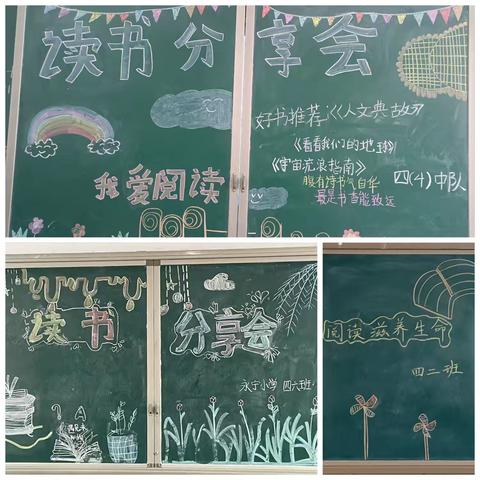 读书分享会
好书推荐:《人文典故》
《看看我们的地球》
《宇宙流浪指南》
腹有诗书气自华
最是书香能致远
四(4)中队
我爱阅读
读书
分享会
永宁小学 四六班
阅读滋养生命
四二班